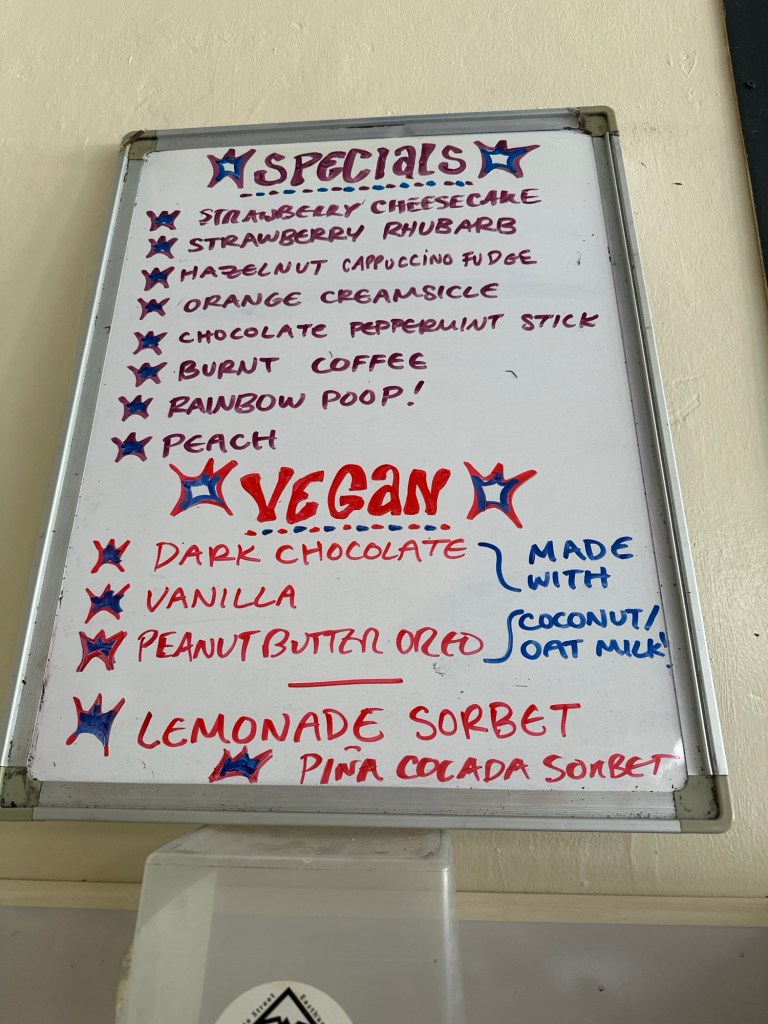 SPECIALS
STRAWBERRY CHEESECAKE
STRAWBERRY RHUBARB
HAZELNUT CAPPUCCINO FUDGE
ORANGE CREAMSICLE
CHOCOLATE PEPPERMINT STICK
BURNT COFFEE
RAINBOW POOP!
PEACH
VEGAN
DARK CHOCOLATE
VANILLA
PEANUT BUTTER OREO
MADE
WITH
COCONUT/
OAT MILK!
LEMONADE SORBET
PIÑA COLADA SORBET
Street